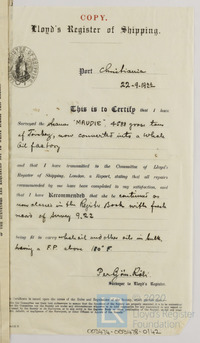 COPY.
Lloyd's Register of Shipping.
Port Christiania
22-9-1922
This is to Certify that I have
Surveyed the Steamer "MAUDIE" 4588 gross tons
of Tonsberg, now converted into a whale
oil factory
and that I have transmitted to the Committee of Lloyd's
Register of Shipping, London, a Report, stating that all repairs
recommended by me have been completed to my satisfaction, and
that I have Recommended that she be continued as
now classed in the Register Book with fresh
record of Survey 9.22
being fit to carry whale oil and other oils in bulk,
having a F.P. above 150° F
Surveyor to Lloyd's Register.
Lloyd's Register
Foundation